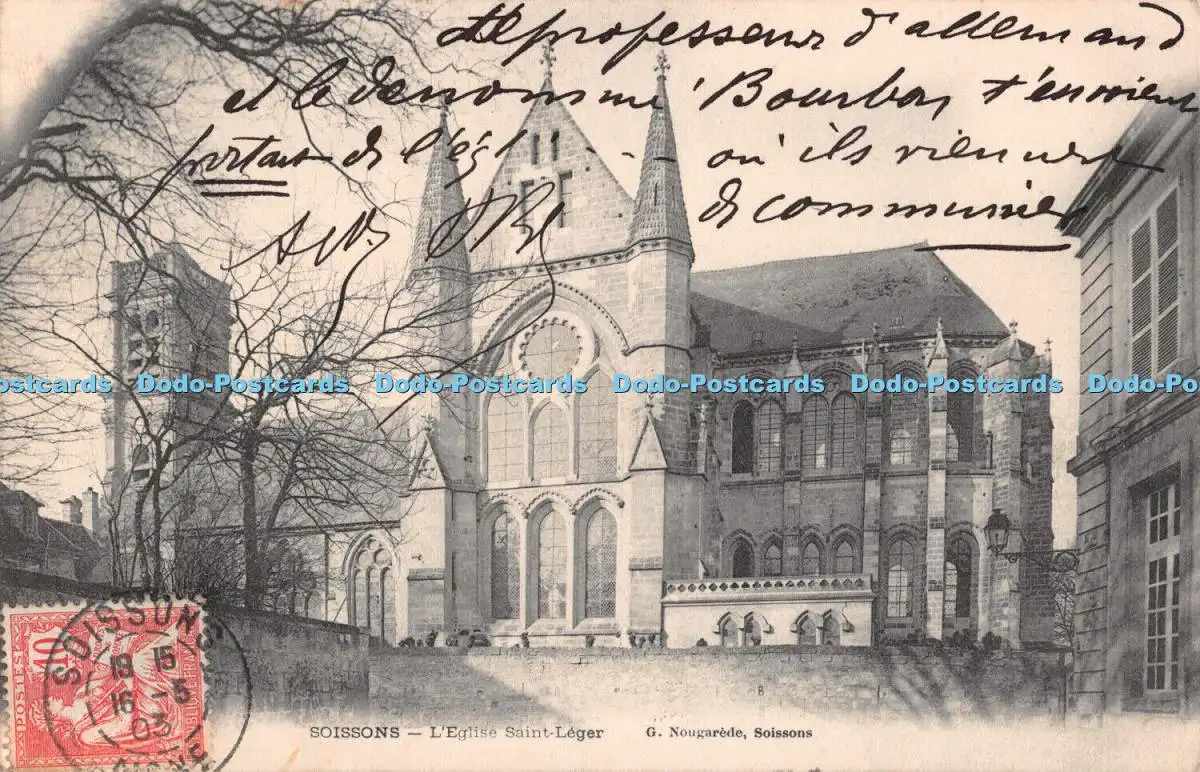 Le professeur d'allemand
et le dénommé Bourbon t'envoient
portail de l'église où ils viennent
de communier
Dodo-Postcards Dodo-Postcards Dodo-Postcards Dodo-Postcards Dodo-Postcards
POSTES
10
SOISSONS
19 15
16 -5
03
SOISSONS – L'Eglise Saint-Léger G. Nougarède, Soissons